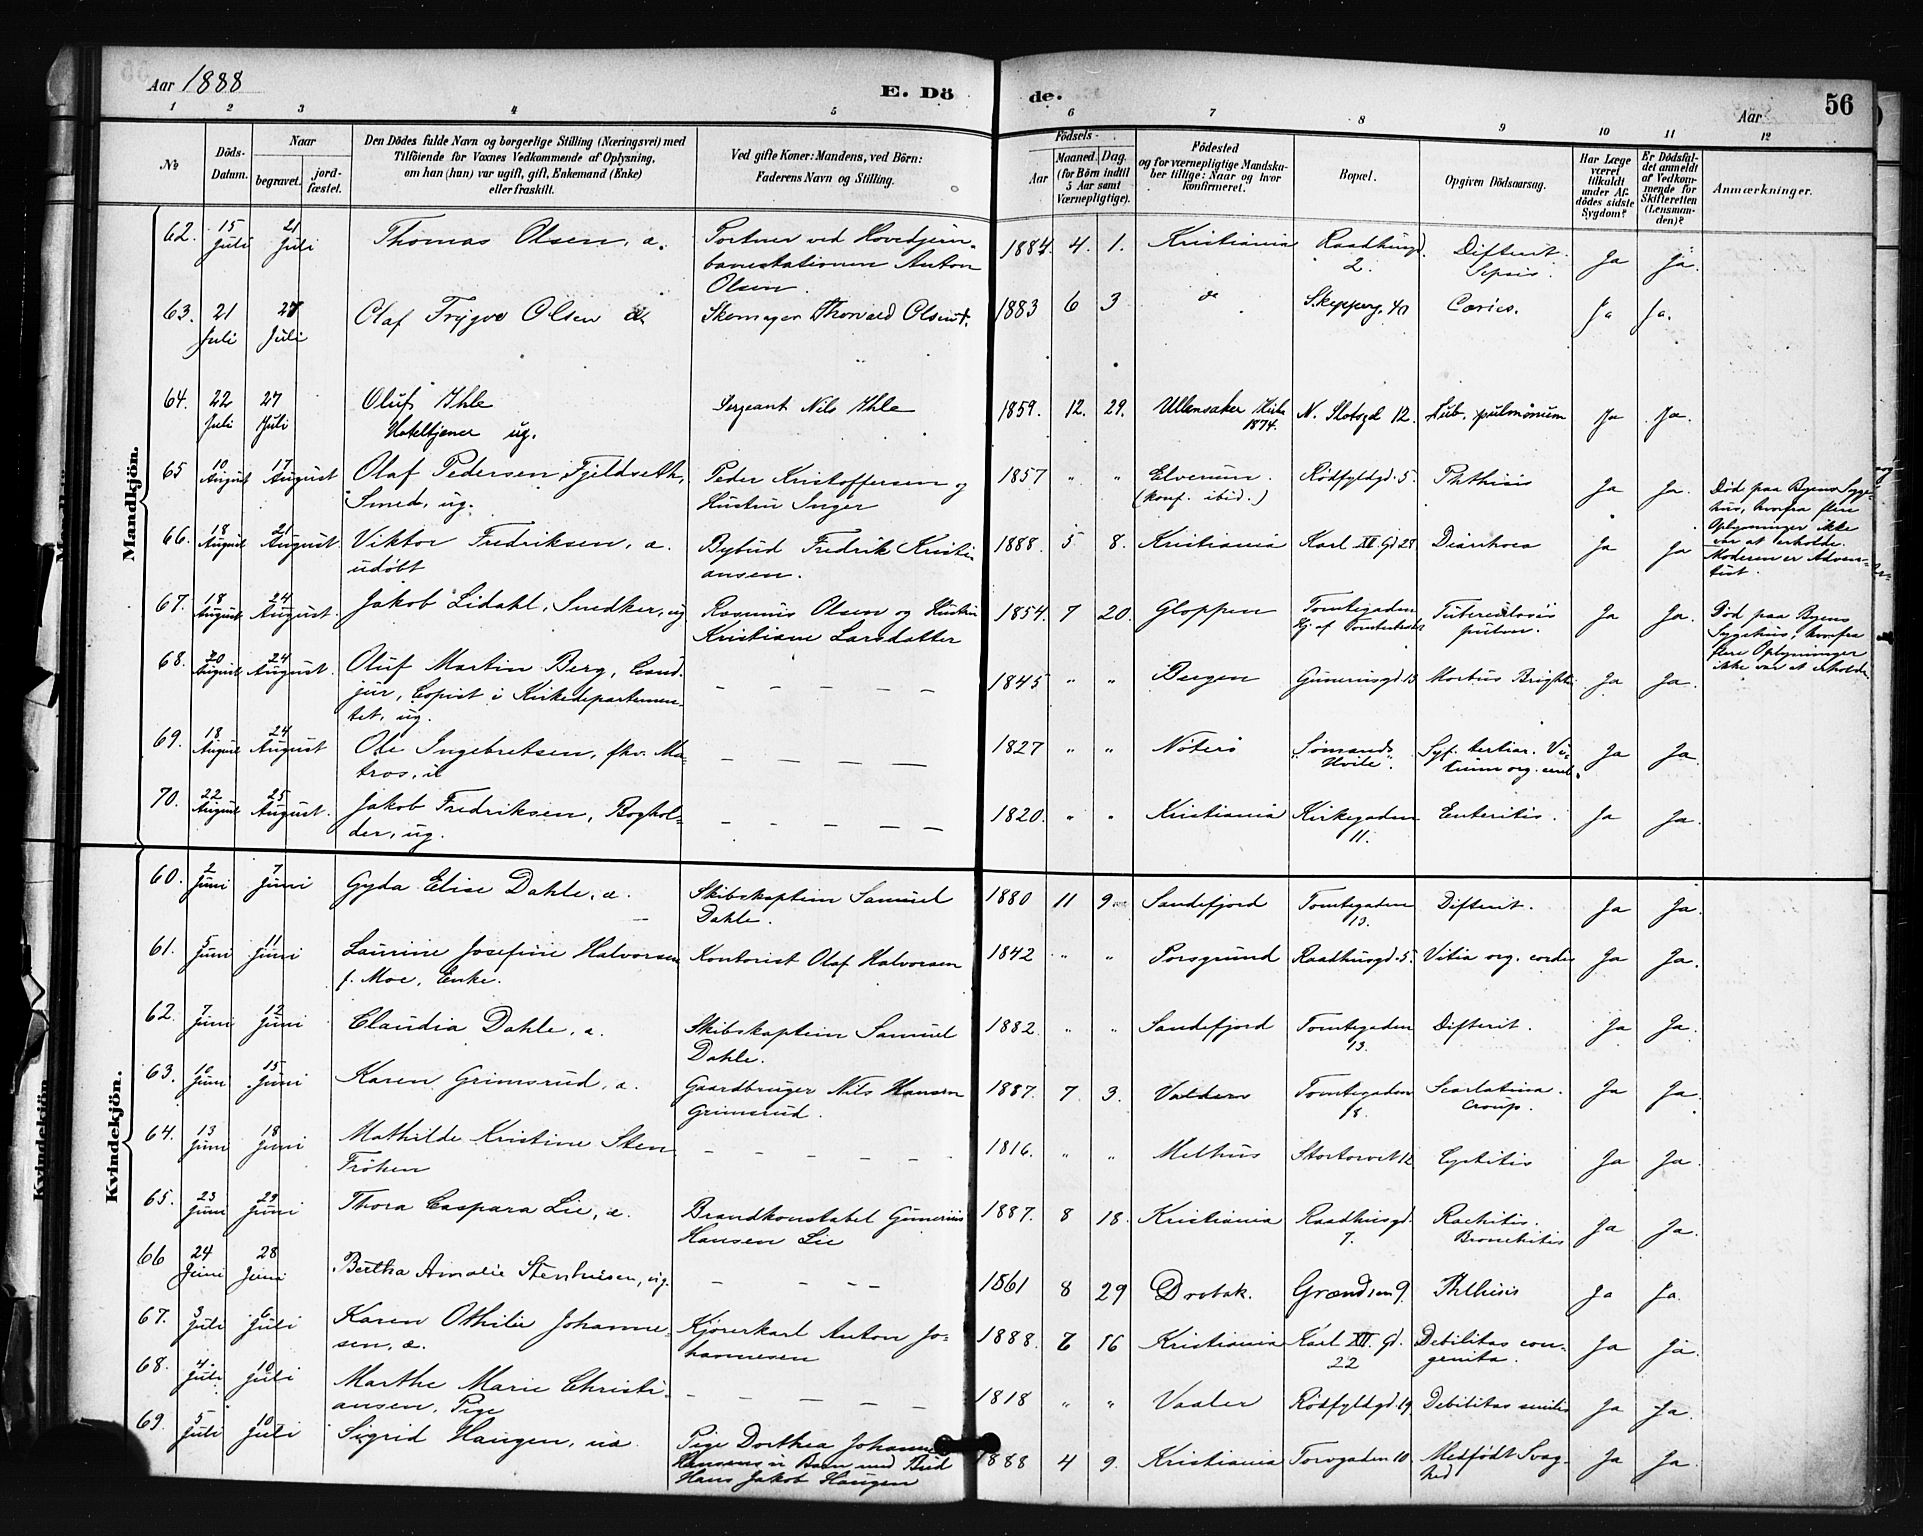 Aar 1888
E. Dö
de.
Aar
56
1 2 3 4 5 6 7 8 9 10 11 12
№
Döds-
Datum.
Naar
begravet.
jord-
fæstet.
Den Dödes fulde Navn og borgerlige Stilling (Næringsvei) med
Tilföiende for Voxnes Vedkommende af Oplysning,
om han (hun) var ugift, gift, Enkemand (Enke)
eller fraskilt.
Ved gifte Koner: Mandens, ved Börn:
Faderens Navn og Stilling.
Födsels-
Aar
Maaned. Dag.
(for Börn indtil
5 Aar samt
Værnepligtige).
Födested
og for værnepligtige Mandska-
ber tillige: Naar og hvor
konfirmeret.
Bopæl.
Opgiven Dödsaarsag.
Har Læge
været
tilkaldt
under Af-
dödes sidste
Sygdom?
Er Dödsfal-
det anmeldt
af Vedkom-
mende for
Skifteretten
(Lensman-
den)?
Anmærkninger.
Mandkjön.
62. 15 Juli 21 Juli Thomas Olsen, æ. Portner ved Hovedjern-
banestationen Anton
Olsen. 1884. 4. 1. Kristiania Raadhusgd.
2. Difterit.
Sepsis. Ja Ja.
63. 21 Juli 27 Juli Olaf Trygve Olsen æ Skomager Thorvald Olsen 1883 6 3 do Skipperg. 40 Caries. Ja Ja.
64. 22 Juli 27 Juli Oluf Ihle
Hoteltjener ug. Sergeant Nils Ihle 1859. 12. 29. Ullensaker Kirke
1874. N. Slotsgd 12. Tub. pulmonum Ja Ja.
65 10 August 17 August Olaf Pedersen Fjeldseth,
Smed, ug. Peder Kristoffersen og
Hustru Inger 1857 " " Elverum.
(konf. ibid.) Rödfyldgd. 5. Phthisis Ja Ja. Död paa Byens Syge-
hus, hvorfra flere
Oplysninger ikke
var at erholde.
66. 18 August 21 August Viktor Fredriksen, æ.
udöbt Bybud Fredrik Kristi-
ansen. 1888. 5 8. Kristiania Karl XII Gd 28 Diarrhoea Ja Ja Moderen er Adven-
tist.
67. 18 August 24 August. Jakob Lidahl, Snedker, ug Rasmus Olsen og Hustru
Kristiane Larsdatter 1854. 7 20. Gloppen Tomtegaden
Tuberculosis
pulm. Ja Ja. Död paa Byens
Sygehus, hvorfra
flere Oplysninger
ikke var at erholde
68. 20 August 24 August. Oluf Martin Berg, Cand.
jur, Copist i Kirkedepartemen-
tet, ug. – – – – – 1845 " " Bergen Gunerusgd 13 Morbus Brightii Ja Ja.
69. 18 August 24 August Ole Ingebretsen, fhv. Ma-
tros, – – – – – 1827 " " Nöterö "Sömands
Hvile". Syf. tertiar. Vi-
tium org. Ja Ja.
70. 22 August 25 August. Jakob Fredriksen, Boghol-
der, ug. – – – – – 1820. " " Kristiania Kirkegaden
11. Enteritis. Ja Ja.
Kvindekjön.
60. 2 Juni 7 Juni Gyda Elise Dahle, æ. Skibskaptein Samuel
Dahle. 1880 11 9 Sandefjord Tomtegaden
13. Difterit. Ja Ja.
61. 5 Juni 11 Juni Laurine Josefine Halvorsen
f. Moe, Enke. Kontorist Olaf Halvorsen 1842 " " Porsgrund Raadhusgd. 5. Vitia org. cordis Ja Ja.
62. 7 Juni 12 Juni Claudia Dahle, æ. Skibskaptein Samuel
Dahle. 1882. " " Sandefjord Tomtegaden
13. Difterit. Ja Ja.
63. 10 Juni 15 Juni Karen Grimsrud, æ. Gaardbruger Nils Hansen
Grimsrud. 1887. 7 3. Valders Tomtegaden
Scarlatina.
Croup. Ja Ja.
64. 13 Juni 18 Juni Mathilde Kristine Sten
Fröken – – – – – 1816. " " Melhus Stortorvet 12 Cystitis Ja Ja.
65. 23 Juni 29 Juni Thora Caspara Lie, æ. Brandkonstabel Gunerius
Hansen Lie 1887. 8 18. Kristiania Raadhusgd.
7. Rachitis.
Bronchitis Ja Ja.
66 24 Juni 28 Juni Bertha Amalie Stenhusen, ug. – – – – 1861 8 29 Drøbak. Grændsen 9. Phthisis Ja Ja.
67. 3 Juli 6 Juli Karen Othilie Johanne-
sen, æ. Kjörerkarl Anton Jo-
hannesen 1888. 6 16 Kristiania Karl XII. Gd.
22 Debilitas con-
genita. Ja Ja.
68. 4. Juli 10 Juli Marthe Marie Christi-
ansen, Pige – – – – – 1818 " " Vaaler Rödfyldgd. 19 Debilitas senilis Ja Ja.
69. 5 Juli 10 Juli Sigrid Haugen, uæ. Pige Dorthea Johanne
Hansens Barn med Bud
Hans Jakob Haugen 1888 4 9. Kristiania Torvgaden 10 Medfödt Svag-
hed Ja Ja.